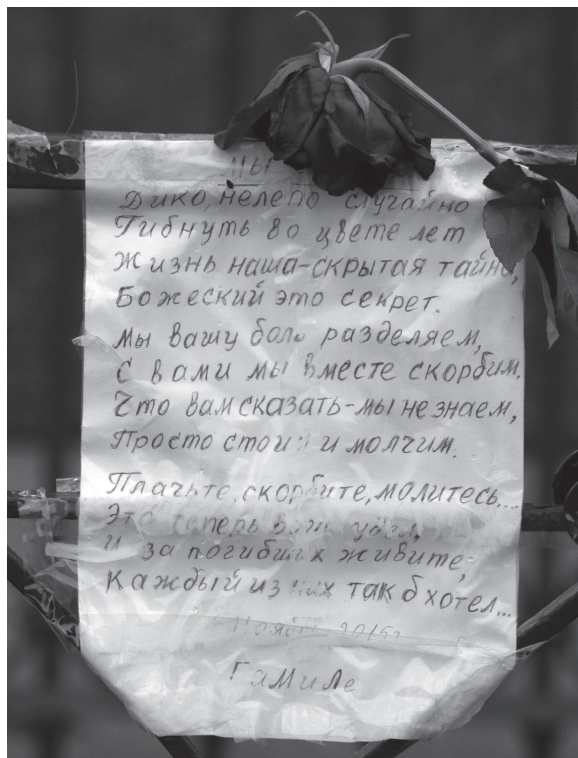 Мы
Дико, нелепо случайно
Гибнуть во цвете лет
Жизнь наша-скрытая тайна,
Божеский это секрет.
Мы вашу боль разделяем,
С вами мы вместе скорбим.
Что вам сказать-мы не знаем,
Просто стоим и молчим.
Плачьте, скорбите, молитесь...
Это теперь ваш удел,
и за погибших живите,
Каждый из них так б хотел...
Ноябрь 2015г